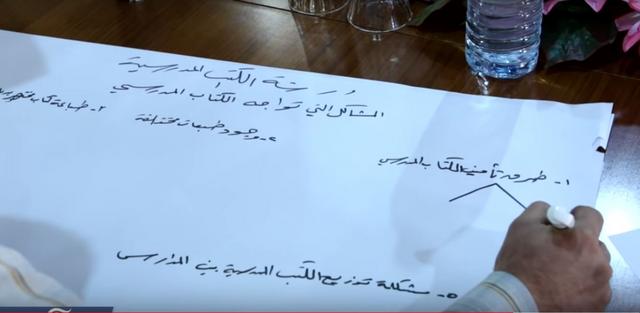 وُرشة الكتب المدرسية
المشاكل التي تواجه الكتاب المدرسي
١- طرق تأمين الكتاب المدرسي
٢- طباعة كتاب
٤- وجود طبعات مختلفة
٥- مشكلة توزيع الكتب المدرسية بين المدارس